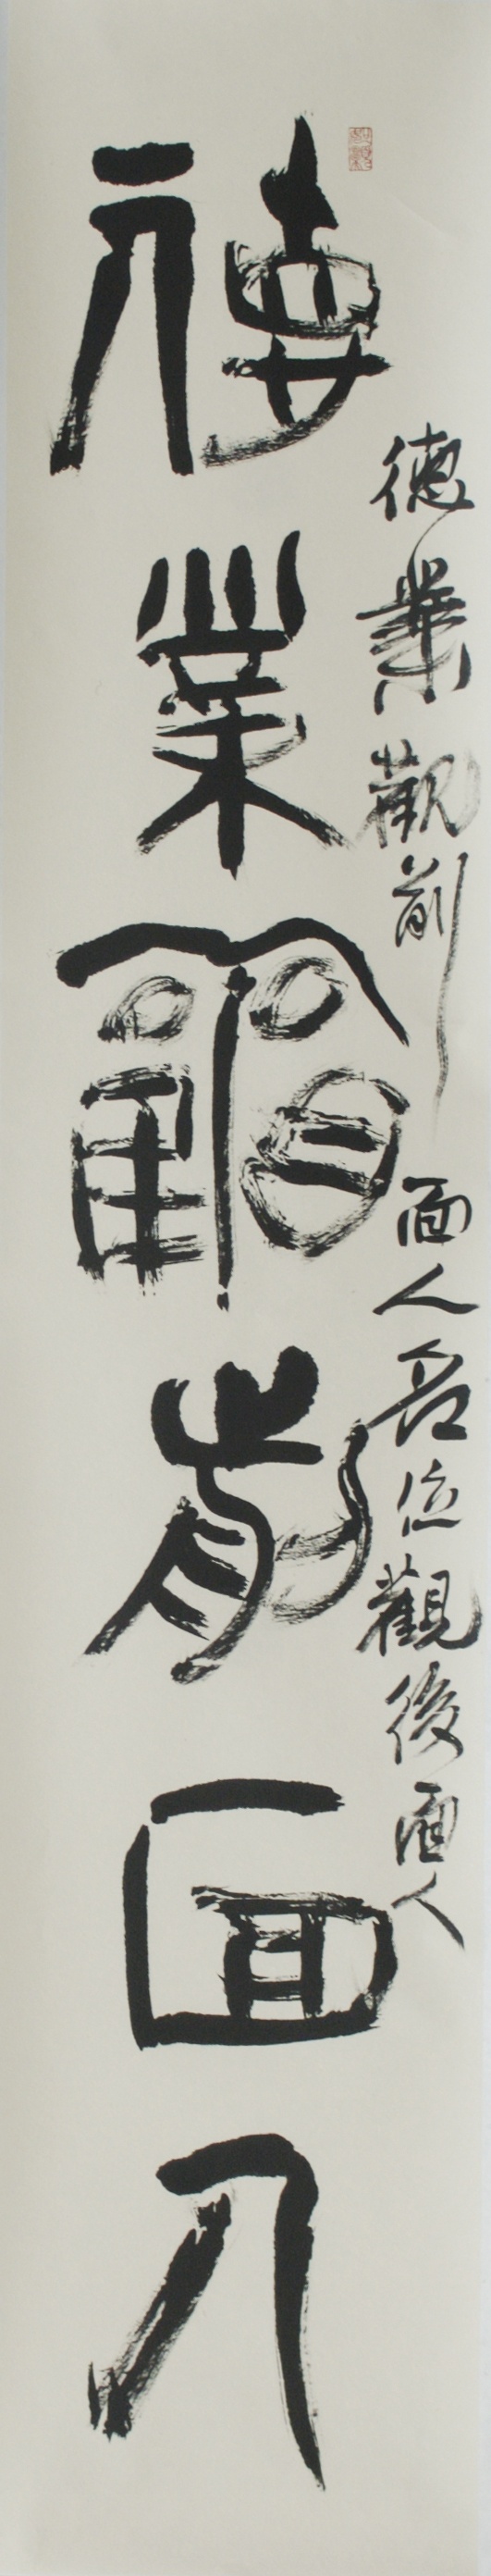 德業觀前面人名位觀後面人
德業觀前面人